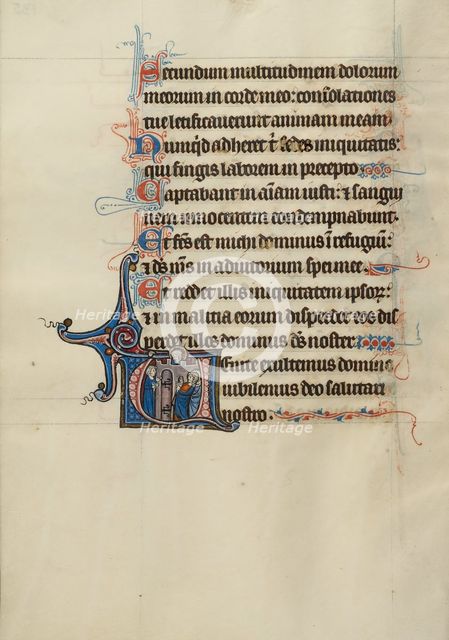 Secundum multitudinem dolorum
meorum in corde meo: consolationes
tue letificaverunt animam meam
Nunq'd adheret t' sedes iniquitatis:
qui fingis laborem in precepto
Captabunt in aīam iusti: et sangui
nem innocentem condempnabunt.
Et fc̄s est michi dominus ī refugiū:
et ds̄ ms̄ in adiutorium spei mee.
Et reddet illis iniquitatem ipsorz:
et in malitia eorum disperdet eos dis
perdet illos dominus ds̄ noster
Venite exultemus domino
iubilemus deo salutari
nostro.
Heritage Heritage
Heritage Heritage